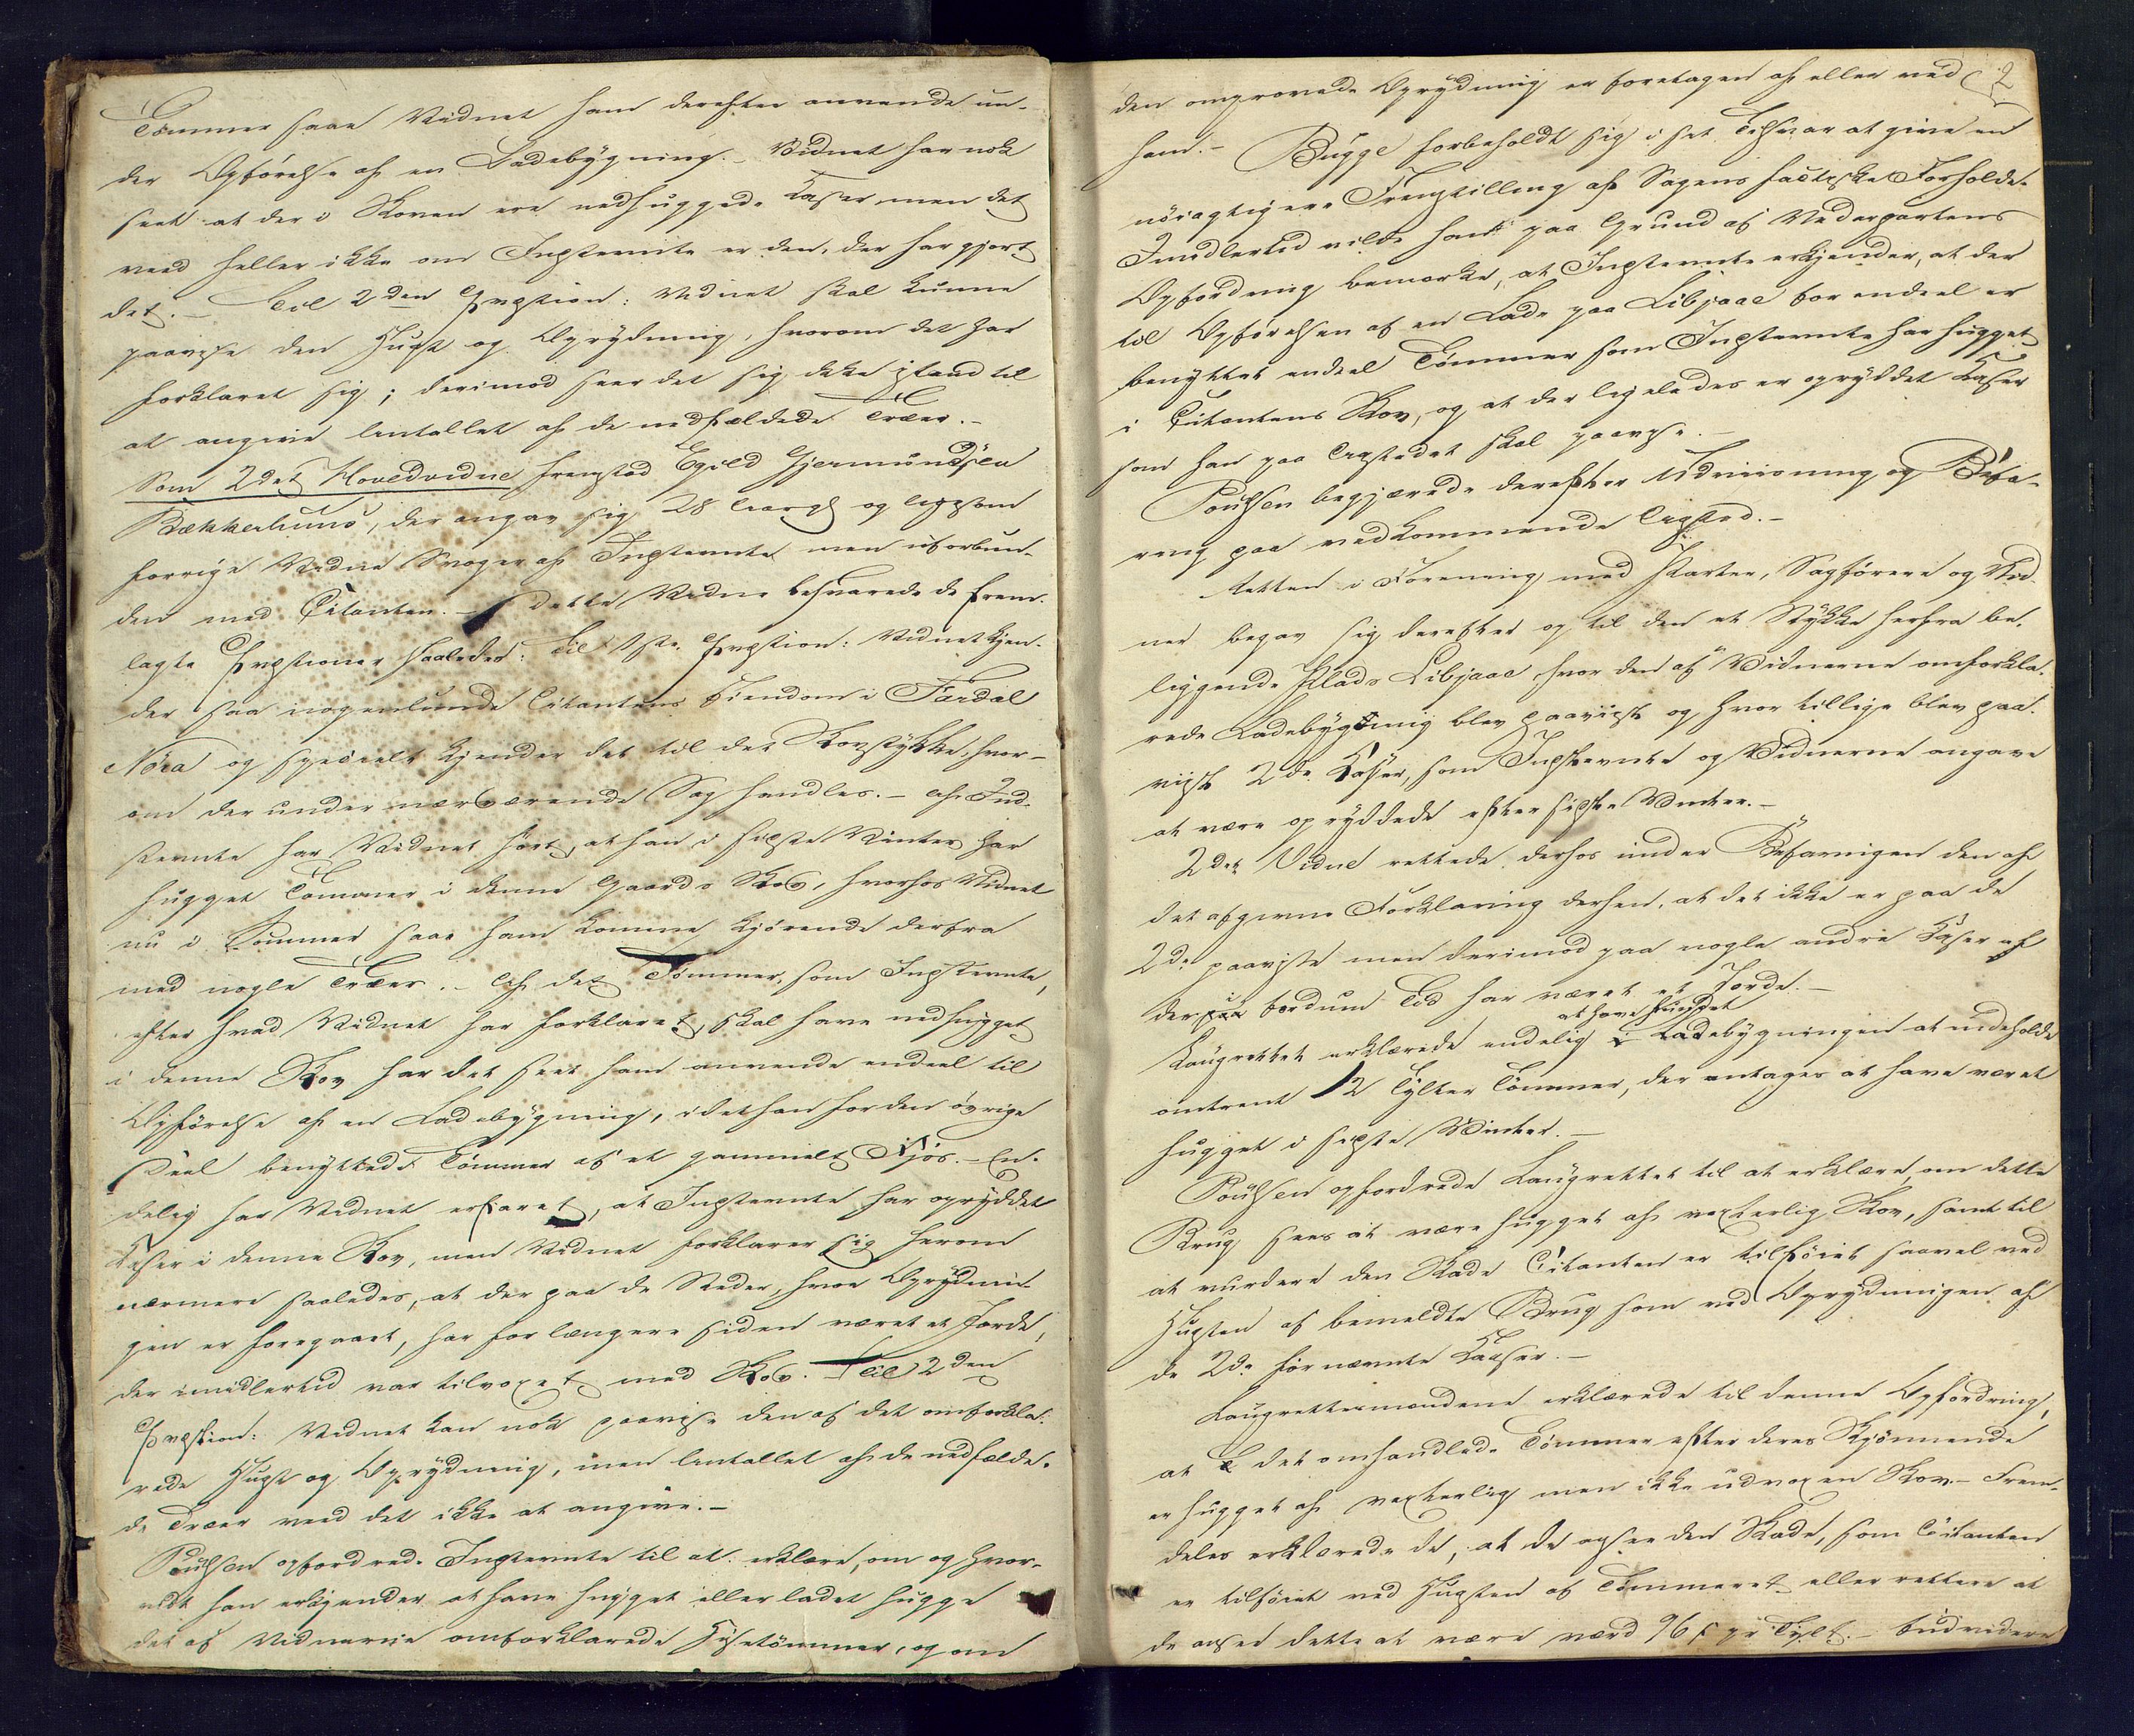 Tømmer saae Vidnet ham derefter anvende un-
der Opførelse af en Ladebygning. - Vidnet har nok
seet at der i Skoven ere nedhuggede Kaser, men det
veed heller ikke om Indstevnte er den, der har gjort
det. - Til 2den Qvæstion: Vidnet skal kunne
paavise den Hugst og Oprydning, hvorom det har
forklaret sig; derimod seer det sig ikke istand til
at angive Antallet af de nedfældede Træer. -
Som 2det Hovedvidne fremstod Egild Gjermundsen
Bækkerhuus, der angav sig 28 Aar gl. og ligesom
forrige Vidne Svoger af Indstevnte men uforbun-
den med Citanten. - Dette Vidne besvarede de frem-
lagte Qvæstioner saaledes: Til 1ste Qvæstion: Vidnet kjen-
der saa nogenlunde Citantens Eiendom i Fardal
Nøra og specielt kjender det til det Skovstykke, hvor-
om der under nærværende Sag handles. - Af Ind-
stevnte har Vidnet hørt, at han i sidste Vinter har
hugget Tømmer i denne Gaards Skov, hvorhos Vidnet
nu i Sommer saae ham komme kjørende derfra
med nogle Træer. - Af det Tømmer, som Indstevnte,
efter hvad Vidnet har forklaret, skal have nedhugget
i denne Skov har det seet ham anvende endeel til
Opførelse af en Ladebygning, idet han for den øvrige
Deel benyttede Tømmer af et gammelt Fjøs. - En-
delig har Vidnet erfaret, at Indstevnte har opryddet
Kaser i denne Skov, men Vidnet forklarer sig herom
nærmere saaledes, at der paa de Steder, hvor Oprydnin-
gen er foregaaet, har for længere siden været et Jorde,
der imidlertid var tilvoxet med Skov. - Til 2den
Qvæstion: Vidnet kan nok paavise den af det omforkla-
rede Hugst og Oprydning, men Antallet af de nedfælde-
de Træer veed det ikke at angive. -
Poulsen opfordrede Indstevnte til at erklære, om og hvor-
vidt han erkjender at have hugget eller ladet hugge
det af Vidnerne omforklarede Huustømmer, og om
2
den omprovede Oprydning er foretagen af eller ved
ham. - Bugge forbeholdt sig i sit Tilsvar at give en
nøiagtigere Fremstilling af Sagens factiske Forholde.
Imidlertid vilde han paa Grund af Modpartens
Opfordring bemærke, at Indstevnte erkjender, at der
til Opførelsen af en Lade paa Libjaae for endeel er
benyttet endeel Tømmer som Indstevnte har hugget
i Citantens Skov, og at der ligeledes er opryddet Kaser
som han paa Aastedet skal paavise. -
Poulsen begjærede derefter Udvisning og Befa-
ring paa vedkommende Aasted. -
Retten i Forening med Parter, Sagførere og Vid-
ner begav sig derefter op til den et Stykke herfra be-
liggende Plads Libjaae, hvor den af Vidnerne omforkla-
rede Ladebygning blev paaviist og hvor tillige blev paa-
viist 2de Kaser, som Indstevnte og Vidnerne angave
at være opryddede efter sidste Vinter. -
2det Vidne rettede derhos under Befaringen den af
det afgivne Forklaring derhen, at det ikke er paa de
2de paaviste men derimod paa nogle andre Kaser at
der i fordum Tid har været et Jorde. -
at have fundet
Laugrettet erklærede endelig i Ladebygningen at indeholde
omtrent 12 Tylter Tømmer, der antages at have været
hugget i sidste Vinter. -
Poulsen opfordrede Laugrettet til at erklære, om dette
Brug sees at være hugget af voxterlig Skov, samt til
at vurdere den Skade Citanten er tilføiet saavel ved
Hugsten af bemeldte Brug som ved Oprydningen af
de 2de førnævnte Kaaser. -
Laugrettesmændene erklærede til denne Opfordring,
at det omhandlede Tømmer efter deres Skjønnende
er hugget af voxterlig men ikke udvoxen Skov. - Frem-
deles erklærede de, at de ansee den Skade, som Citanten
er tilføiet ved Hugsten af Tømmeret eller rettere at
de ansee dette at være værd 96 s pr Tylt. - Endvidere